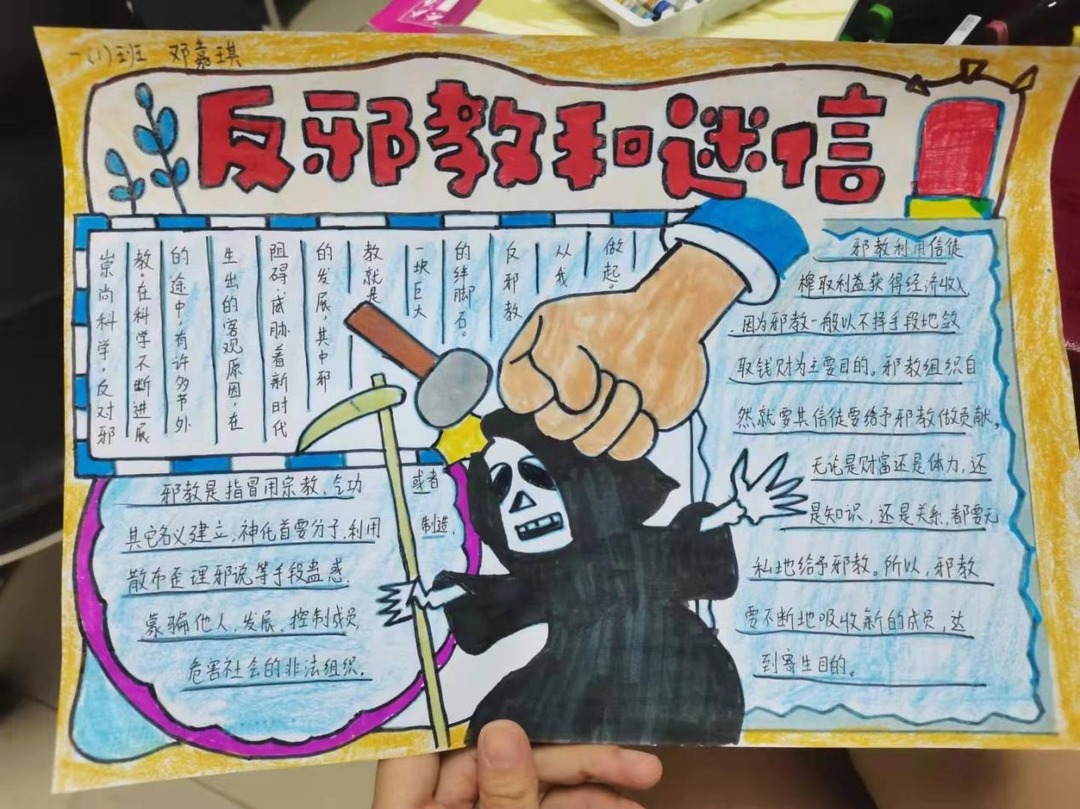 一(1)班 邓嘉琪
反邪教和迷信
崇尚科学,反对邪
教在科学不断进展
的途中,有许多节外
生出的客观原因,在
阻碍威胁着新时代
的发展,其中邪
教就是
一块巨大
的绊脚石。
反邪教
从我
做起。
邪教是指冒用宗教、气功 或者
其它名义建立,神化首要分子,利用 制造,
散布歪理邪说等手段蛊惑.
蒙骗他人,发展、控制成员,
危害社会的非法组织.
邪教利用信徒
榨取利益获得经济收入
,因为邪教一般以不择手段地敛
取钱财为主要目的。邪教组织自
然就要其信徒要给予邪教做贡献,
无论是财富还是体力,还
是知识,还是关系,都要无
私地给予邪教。所以,邪教
要不断地吸收新的成员,达
到寄生目的。